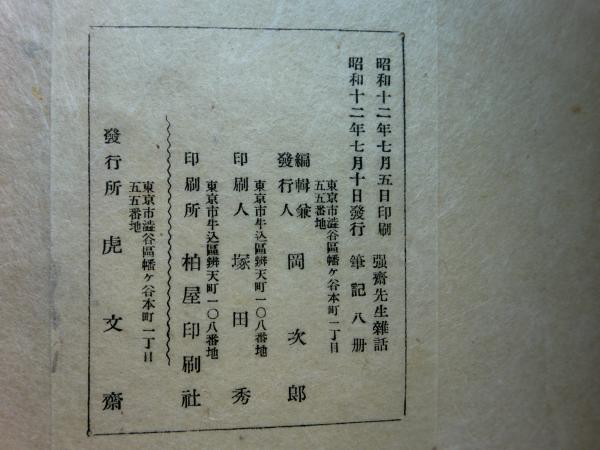 昭和十二年七月五日印刷 强齋先生雜話
昭和十二年七月十日發行 筆記 八册
東京市澁谷區幡ヶ谷本町一丁目
五五番地
編輯兼
發行人 岡次郎
東京市牛込區辨天町一〇八番地
印刷人 塚田秀
東京市牛込區辨天町一〇八番地
印刷所 柏屋印刷社
東京市澁谷區幡ヶ谷本町一丁目
五五番地
發行所 虎文齋